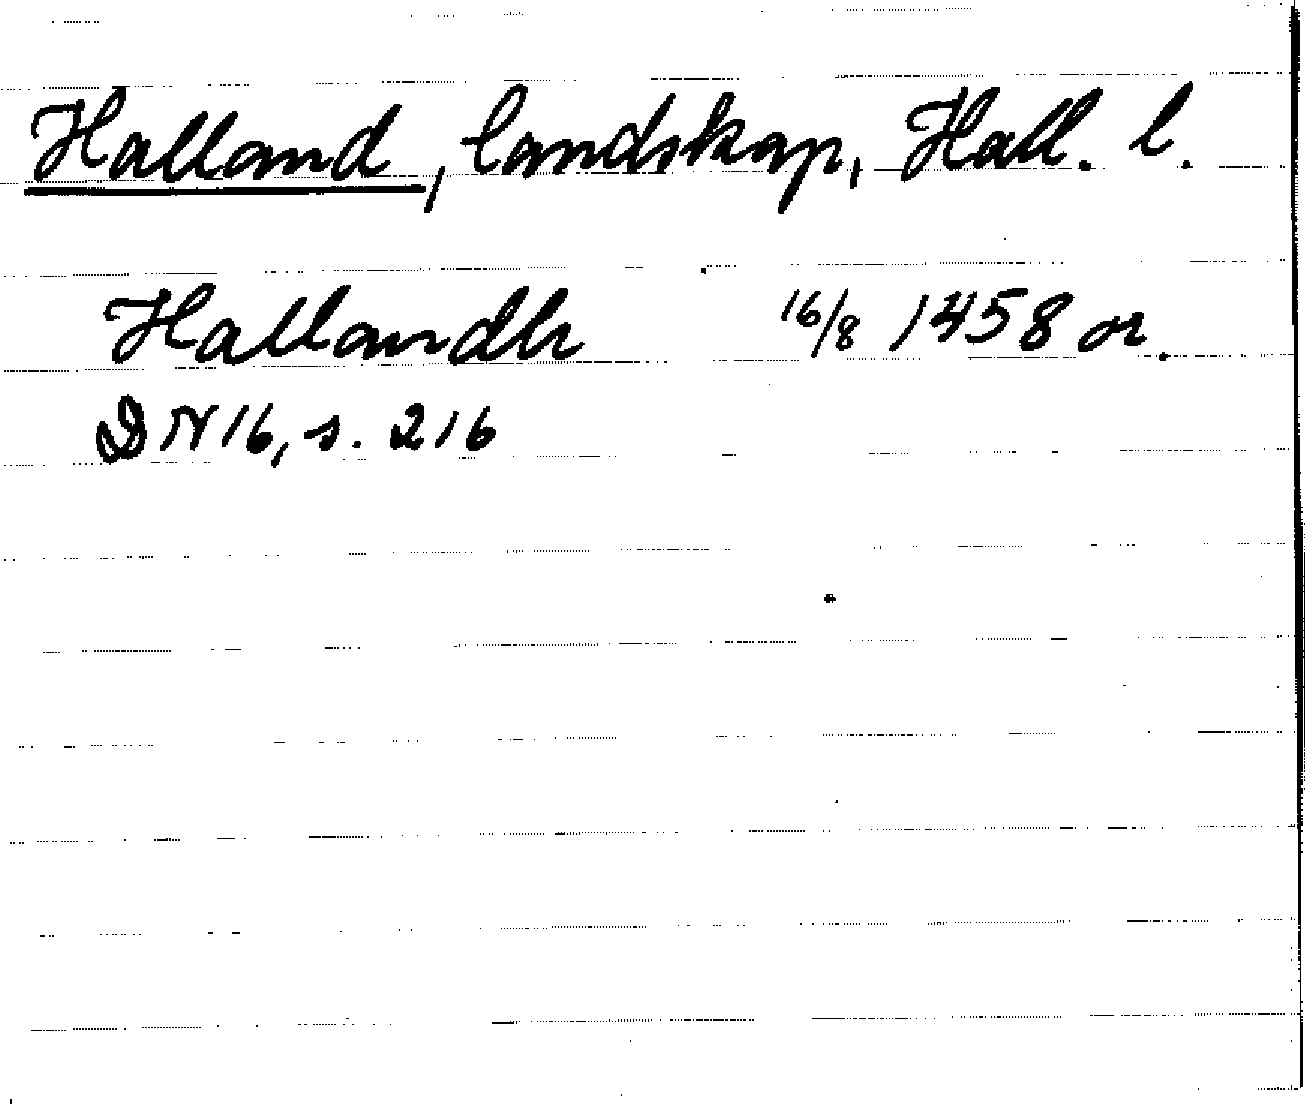 Halland, landskap, Hall. l.
Hallandh 16/8 1458 or.
DN 16, s. 216